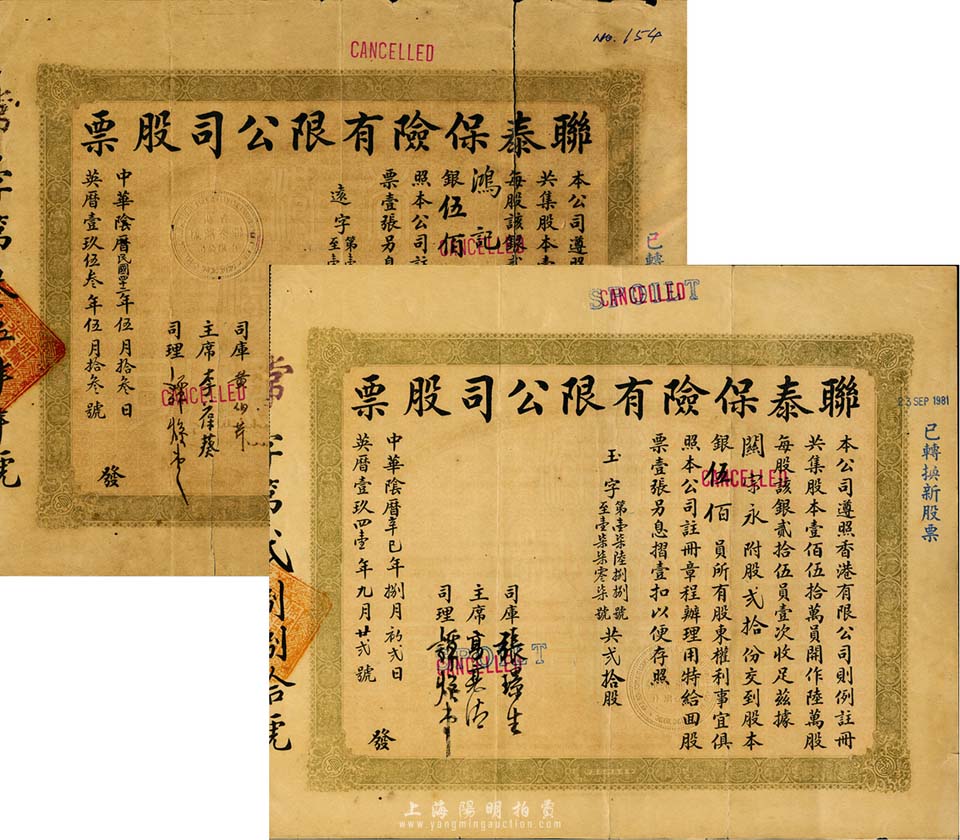 CANCELLED
No. 154
聯泰保險有限公司股票
本公司遵照
共集股本壹
每股該銀貳
鴻記
銀伍佰
照本公司註
票壹張另息
遠字
第壹
至壹
CANCELLED
司庫
主席
司理
CANCELLED
中華陰曆民國四十二年伍月拾叁日
英曆壹玖伍叁年伍月拾叁號
發
已轉
CANCELLED
SPOILT
聯泰保險有限公司股票
23 SEP 1981
已轉換新股票
本公司遵照香港有限公司則例註冊
共集股本壹佰伍拾萬員開作陸萬股
每股該銀貳拾伍員壹次收足茲據
關宗永附股弍拾份交到股本
銀伍佰員所有股東權利事宜俱
照本公司註冊章程辦理用特給回股
票壹張另息摺壹扣以便存照
玉字
第壹柒陸捌捌號
至壹柒柒零柒號
共弍拾股
CANCELLED
司庫
主席
司理
CANCELLED
中華陰曆辛巳年捌月初弍日
英曆壹玖四壹年九月廿弍號
發
字第弍捌捌拾號
上海陽明拍賣
www.yangmingauction.com